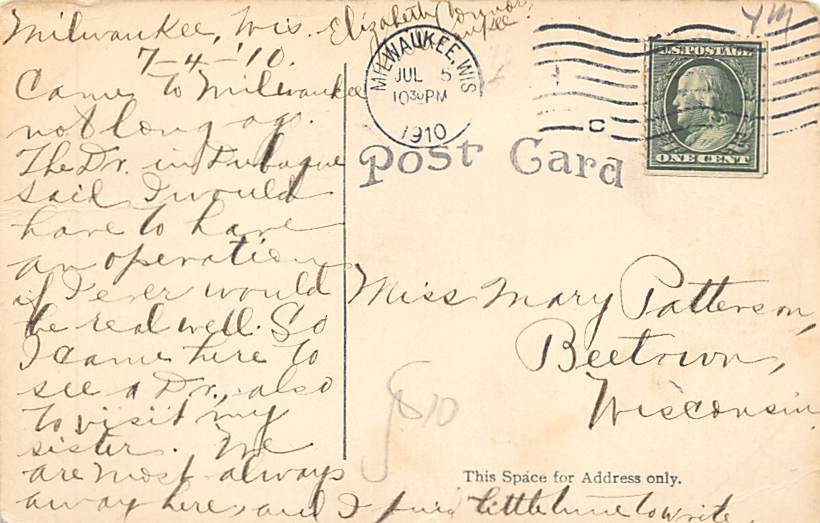 Milwaukee, Wis.
7-4-'10.
Came to Milwaukee
not long ago.
The Dr. in Dubuque
said I would
have to have
an operation
if I ever would
be real well. So
I came here to
see a Dr., also
to visit my
sister. We
are most always
away here, and I find little time to write
Elizabeth Connor,
MILWAUKEE, WIS
JUL 5
1030PM
1910
C
U.S. POSTAGE
ONE CENT
Post Card
Miss Mary Patterson,
Beetown,
Wisconsin.
This Space for Address only.